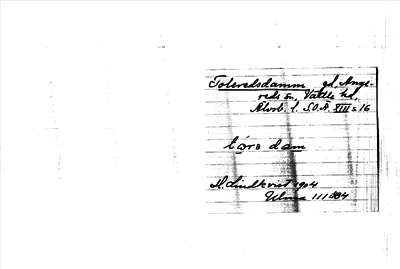 Tolsredsdamm gd. Ange-
reds sn, Vättle hd,
Älvsb. l. S.O.Ä. XIII s 16
dam
H. Lindkvist 1904
Ulma 111:684